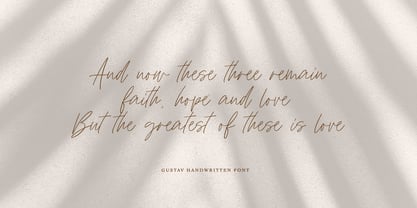 And now these three remain
faith, hope and love
But the greatest of these is love
GUSTAV HANDWRITTEN FONT